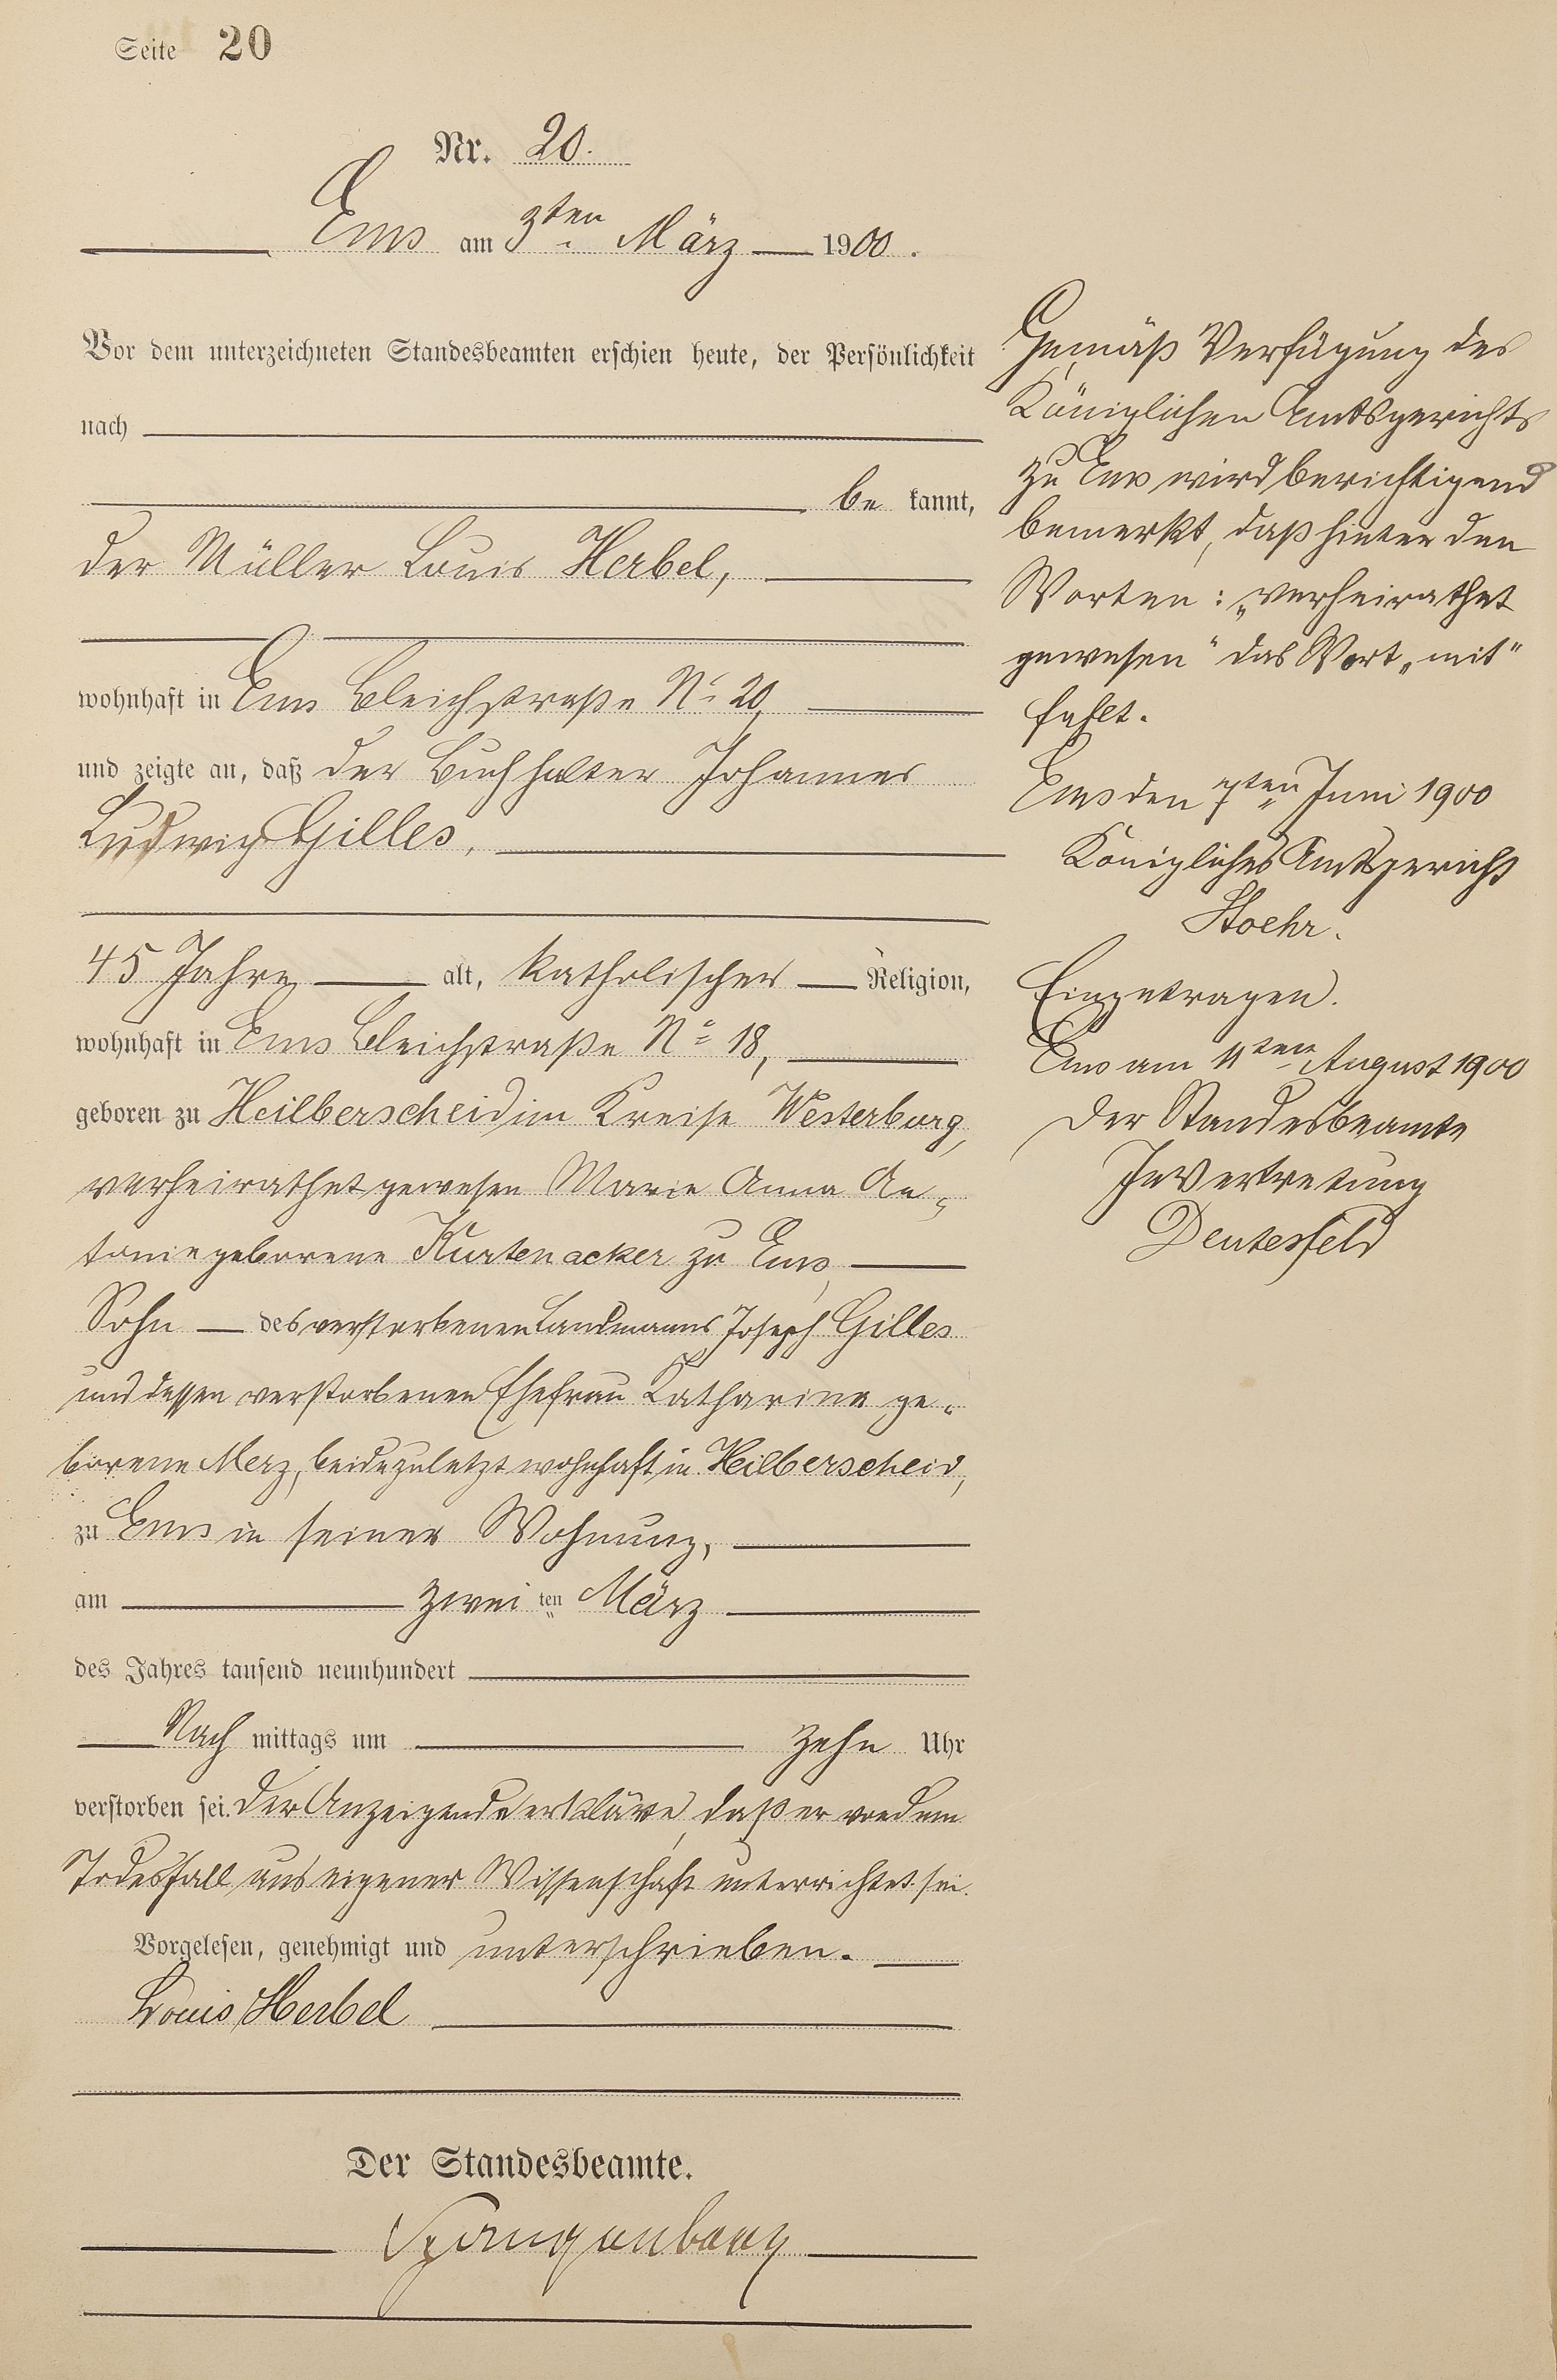 Seite 20
Nr. 20.
Ems am 3ten März 1900.
Vor dem unterzeichneten Standesbeamten erschien heute, der Persönlichkeit
nach
be kannt,
der Müller Louis Herbel,
wohnhaft in Ems Bleichstraße No 20,
und zeigte an, daß der Buchhalter Johannes
Ludwig Gilles,
45 Jahre alt, katholischer Religion,
wohnhaft in Ems Bleichstraße No 18,
geboren zu Heilberscheid im Kreise Westerburg,
verheirathet gewesen Marie Anna An-
tonie geborene Kurtenacker zu Ems,
Sohn des verstorbenen Landmanns Joseph Gilles
und dessen verstorbenen Ehefrau Katharina ge-
borene Merz, beide zuletzt wohnhaft in Heilberscheid,
zu Ems in seiner Wohnung,
am zwei ten März
des Jahres tausend neunhundert
Nach mittags um zehn Uhr
verstorben sei. Der Anzeigende erkläre, daß er von dem
Todesfall aus eigener Wissenschaft unterrichtet sei.
Vorgelesen, genehmigt und unterschrieben.
Louis Herbel
Der Standesbeamte.
Spangenberg
Gemäß Verfügung des
Königlichen Amtsgerichts
zu Ems wird berichtigend
bemerkt, daß hinter den
Worten: „verheirathet
gewesen" das Wort „mit"
fehlt.
Ems den 7ten Juni 1900
Königliches Amtsgericht
Stoehr.
Eingetragen.
Ems am 11ten August 1900
Der Standesbeamte
In Vertretung
Deutesfeld